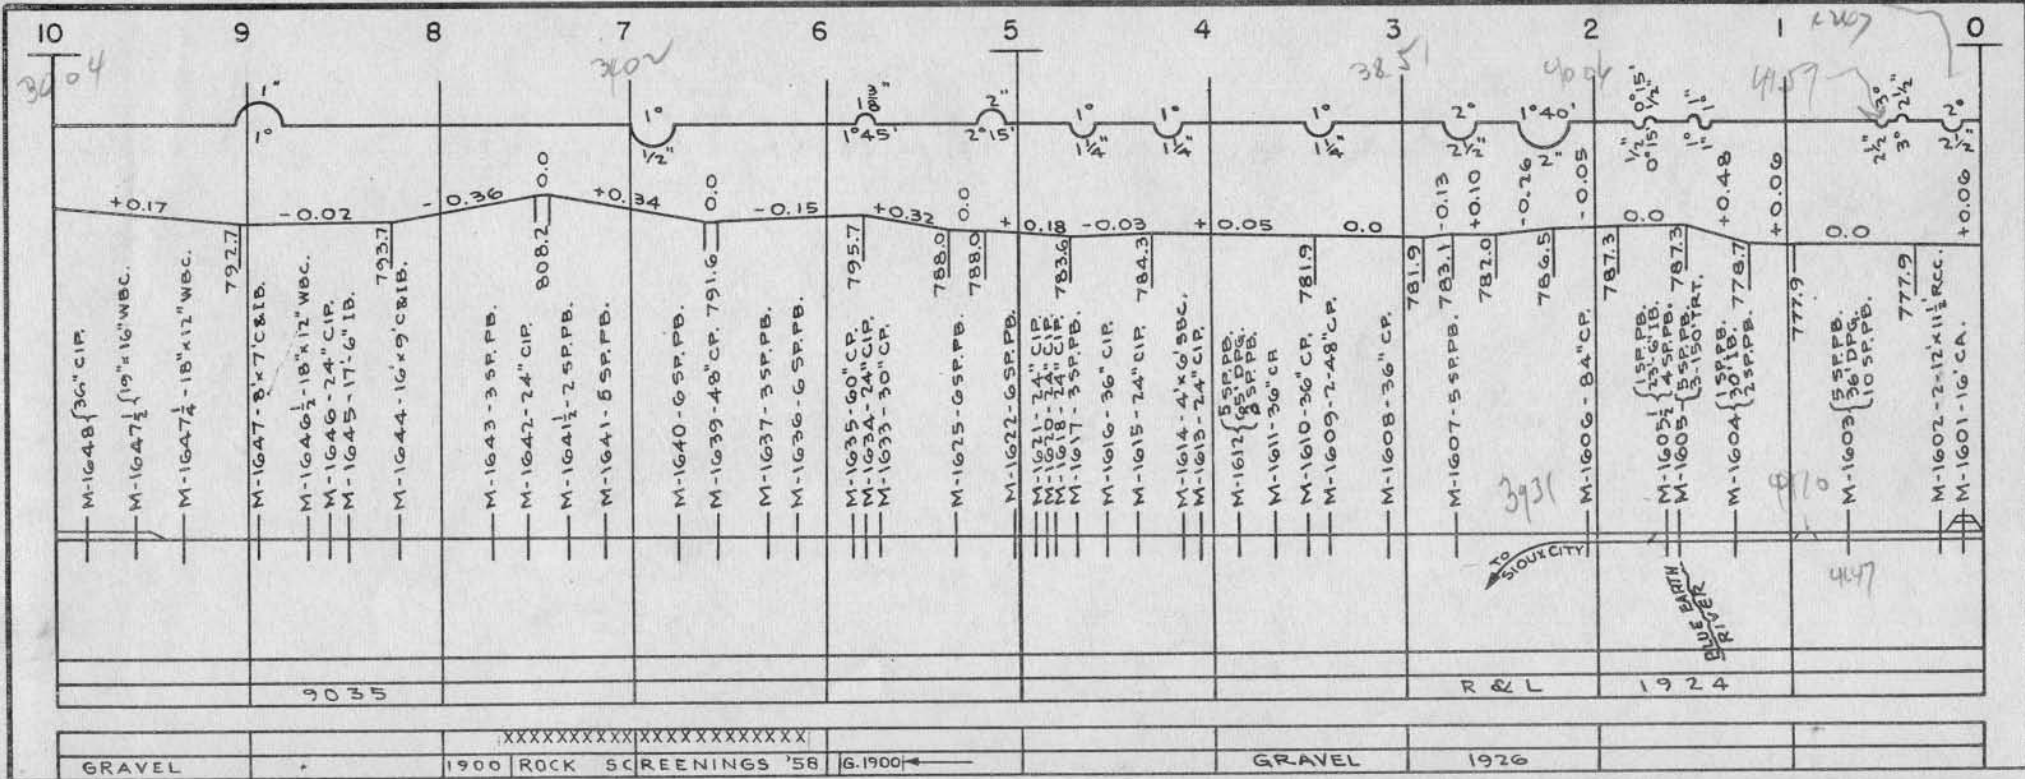 10 9 8 7 6 5 4 3 2 1 0
3602 3851 4159
1" 1° 1° 1/2" 1° 45' 2" 2° 15' 1° 1 1/4" 1° 1 1/4" 1° 1 1/4" 2° 2 1/2" 1° 40' 2" 0° 15' 1/2" 1/2" 0° 15' 1" 1° 1° 1" 3° 2 1/2" 2 1/2" 3° 2° 2 1/2"
+0.17 -0.02 -0.36 0.0 +0.34 0.0 -0.15 +0.32 0.0 + 0.18 -0.03 + 0.05 0.0 -0.13 +0.10 -0.26 -0.05 0.0 +0.48 +0.09 0.0 +0.06
792.7 793.7 808.2 791.6 795.7 788.0 788.0 783.6 784.3 781.9 781.9 783.1 782.0 786.5 787.3 787.3 778.7 777.9 777.9
M-1648{36" CIP.
M-1647½{19"x16" WBC.
M-1647¼-18"x12" WBC.
M-1647-8'x7' C&IB.
M-1646½-18"x12" WBC.
M-1646-24" CIP.
M-1645-17'-6" IB.
M-1644-16'x9' C&IB.
M-1643-3 SP. PB.
M-1642-24" CIP.
M-1641½-2 SP. PB.
M-1641-5 SP. PB.
M-1640-6 SP. PB.
M-1639-48" CP.
M-1637-3 SP. PB.
M-1636-6 SP. PB.
M-1635-60" CP.
M-1634-24" CIP.
M-1633-30" CP.
M-1625-6 SP. PB.
M-1622-6 SP. PB.
M-1621-24" CIP.
M-1620-24" CIP.
M-1618-24" CIP.
M-1617-3 SP. PB.
M-1616-36" CIP.
M-1615-24" CIP.
M-1614-4'x6' SBC.
M-1613-24" CIP.
M-1612{5 SP. PB. DPG. SP. PB.
M-1611-36"
M-1610-36" CP.
M-1609-2-48" CP.
M-1608-36" CP.
M-1607-5 SP. PB.
M-1606-84" CP.
M-1605½{1 SP. PB. 23'-6" IB. 4 SP. PB.
M-1605-{5 SP. PB. 3-150' TRT.
M-1604{1 SP. PB. 30' IB. 2 SP. PB.
M-1603{5 SP. PB. 36' DPG. 10 SP. PB.
M-1602-2-12'x11½' RCC.
M-1601-16' CA.
3931
TO
SIOUX CITY
4147
BLUE EARTH
RIVER
9035 R & L 1924
XXXXXXXXXXXXXXXXXXXXXXX
GRAVEL 1900 ROCK SCREENINGS '58 G.1900 GRAVEL 1926